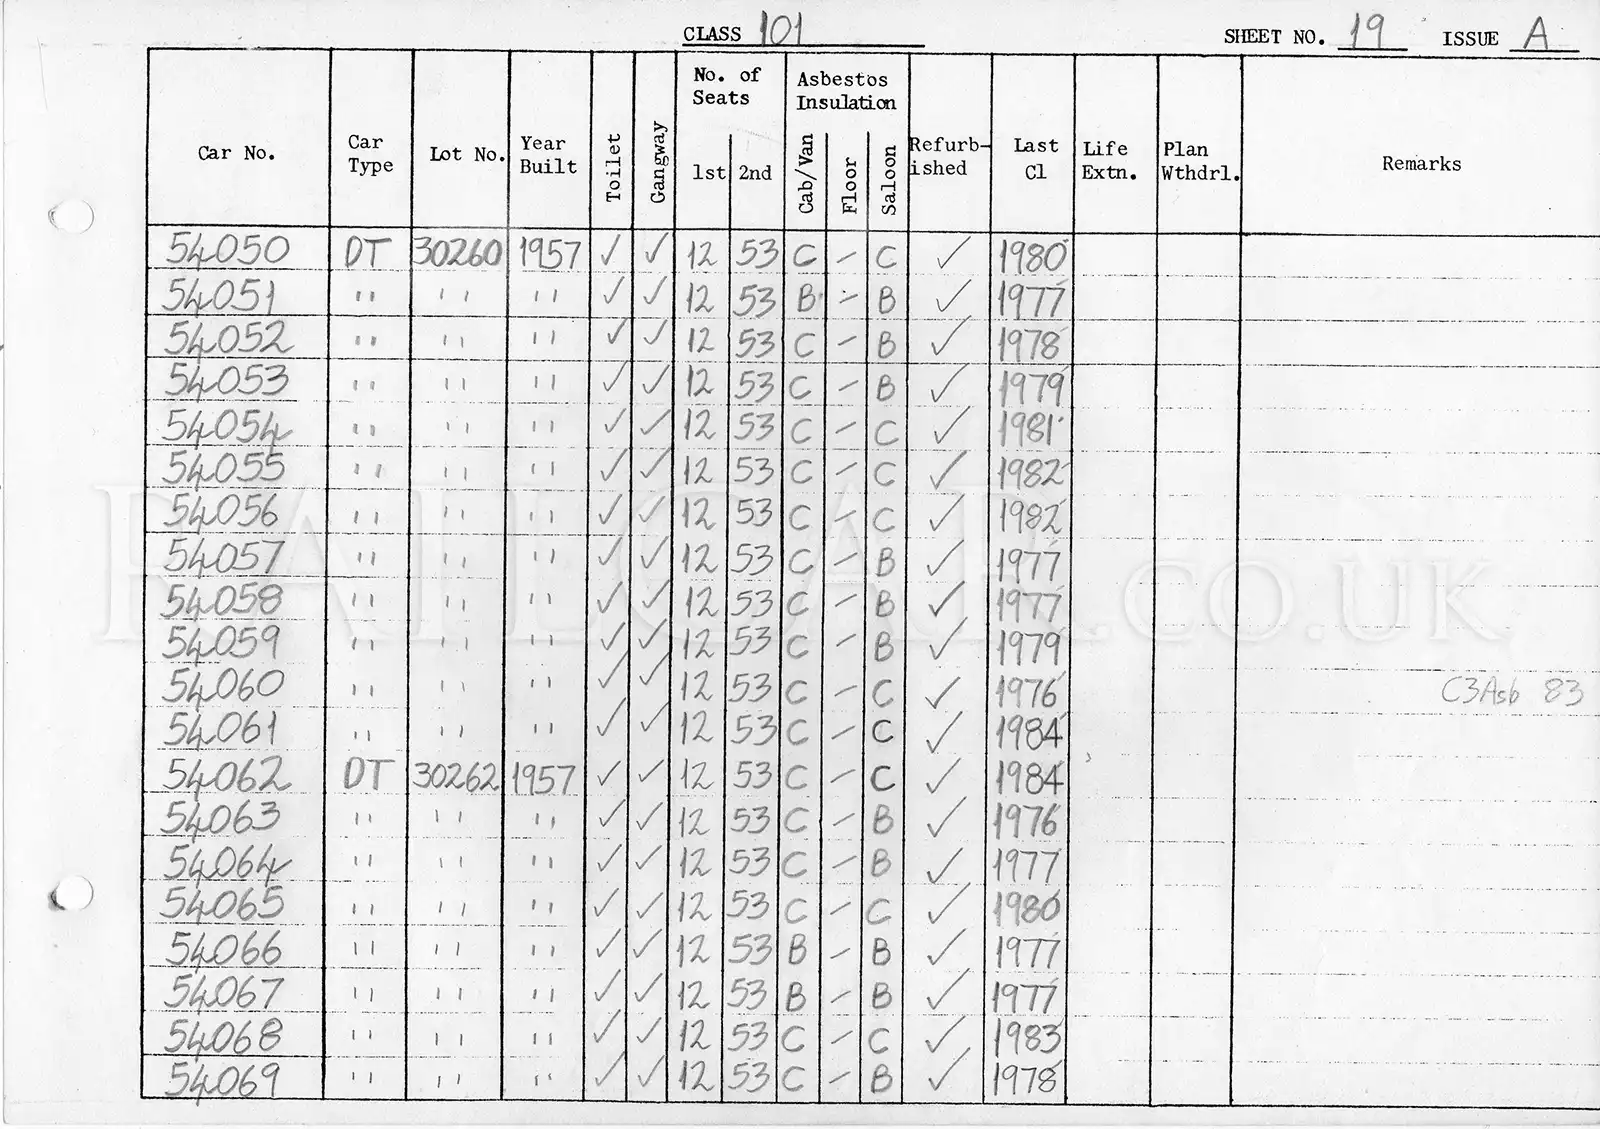 CLASS 101 SHEET NO. 19 ISSUE A
Car No. Car Type Lot No. Year Built Toilet Gangway No. of Seats 1st 2nd Asbestos Insulation Cab/Van Floor Saloon Refurb-ished Last Cl Life Extn. Plan Wthdrl. Remarks
54050 DT 30260 1957 ✓ ✓ 12 53 C - C ✓ 1980
54051 " " " ✓ ✓ 12 53 B - B ✓ 1977
54052 " " " ✓ ✓ 12 53 C - B ✓ 1978
54053 " " " ✓ ✓ 12 53 C - B ✓ 1979
54054 " " " ✓ ✓ 12 53 C - C ✓ 1981
54055 " " " ✓ ✓ 12 53 C - C ✓ 1982
54056 " " " ✓ ✓ 12 53 C - C ✓ 1982
54057 " " " ✓ ✓ 12 53 C - B ✓ 1977
54058 " " " ✓ ✓ 12 53 C - B ✓ 1977
54059 " " " ✓ ✓ 12 53 C - B ✓ 1979
54060 " " " ✓ ✓ 12 53 C - C ✓ 1976 C3Asb 83
54061 " " " ✓ ✓ 12 53 C - C ✓ 1984
54062 DT 30262 1957 ✓ ✓ 12 53 C - C ✓ 1984
54063 " " " ✓ ✓ 12 53 C - B ✓ 1976
54064 " " " ✓ ✓ 12 53 C - B ✓ 1977
54065 " " " ✓ ✓ 12 53 C - C ✓ 1980
54066 " " " ✓ ✓ 12 53 B - B ✓ 1977
54067 " " " ✓ ✓ 12 53 B - B ✓ 1977
54068 " " " ✓ ✓ 12 53 C - C ✓ 1983
54069 " " " ✓ ✓ 12 53 C - B ✓ 1978
RAILCAR.CO.UK